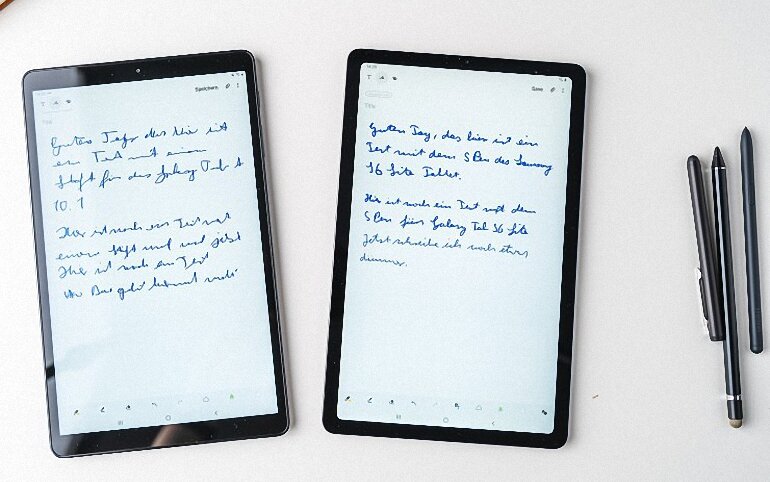 Speichern
Title
Guten Tag, das hier ist
ein Text mit einem
Stift für das Galaxy Tab A
10.1
Hier ist noch ein Text mit
einem Stift und und jetzt
Hier ist noch ein Text
Save
Title
Guten Tag, das hier ist ein
Text mit dem S Pen des Samsung
S6 Lite Tablet.
Hier ist noch ein Text mit dem
S Pen fürs Galaxy Tab S6 Lite
Jetzt schreibe ich noch etwas
dünner.